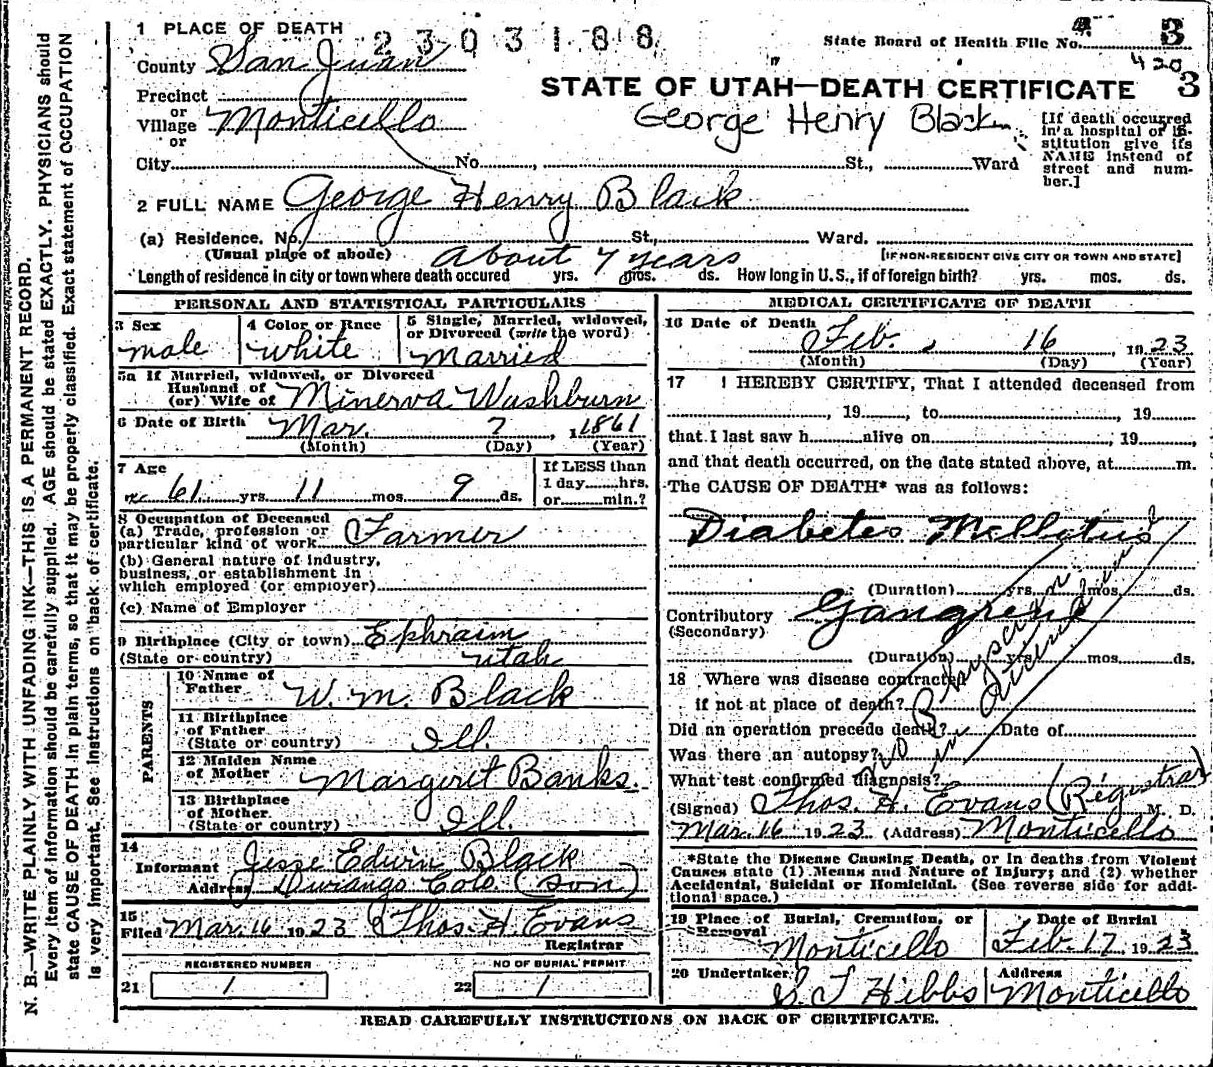 1 PLACE OF DEATH
2303188
State Board of Health File No. 3
County San Juan
420
STATE OF UTAH—DEATH CERTIFICATE 3
Precinct
or
Village Monticello
or
George Henry Black
[If death occurred in a hospital or institution give its NAME instead of street and number.]
City No. , St., Ward
2 FULL NAME George Henry Black
(a) Residence. No. St., Ward.
(Usual place of abode) About 7 years [IF NON-RESIDENT GIVE CITY OR TOWN AND STATE]
Length of residence in city or town where death occured yrs. mos. ds. How long in U. S., if of foreign birth? yrs. mos. ds.
PERSONAL AND STATISTICAL PARTICULARS
3 Sex male
4 Color or Race White
5 Single, Married, widowed, or Divorced (write the word) Married
5a If Married, widowed, or Divorced
Husband of
(or) Wife of Minerva Washburn
6 Date of Birth Mar. 7, 1861
(Month) (Day) (Year)
7 Age
61 yrs. 11 mos. 9 ds.
If LESS than 1 day hrs. or min.?
8 Occupation of Deceased
(a) Trade, profession or
particular kind of work Farmer
(b) General nature of industry,
business, or establishment in
which employed (or employer)
(c) Name of Employer
9 Birthplace (City or town) Ephraim
(State or country) Utah
PARENTS
10 Name of Father W. M. Black
11 Birthplace of Father (State or country) Ill.
12 Maiden Name of Mother Margaret Banks.
13 Birthplace of Mother. (State or country) Ill.
14
Informant Jesse Edwin Black
Address Durango Colo. (son)
15
Filed Mar. 16 1923 Thos. H. Evans
Registrar
REGISTERED NUMBER
21 1
NO OF BURIAL PERMIT
22 1
MEDICAL CERTIFICATE OF DEATH
16 Date of Death
Feb. 16, 1923
(Month) (Day) (Year)
17 I HEREBY CERTIFY, That I attended deceased from
, 19 , to , 19
that I last saw h alive on , 19 ,
and that death occurred, on the date stated above, at m.
The CAUSE OF DEATH* was as follows:
Diabetes Mellotus?
(Duration) yrs. mos. ds.
Contributory Gangrene
(Secondary)
(Duration) yrs. mos. ds.
18 Where was disease contracted
if not at place of death?
Did an operation precede death? Date of
Was there an autopsy?
What test confirmed diagnosis?
No Physician in Attendance
(Signed) Thos. H. Evans (Registrar) M. D.
Mar. 16 1923 (Address) Monticello
*State the Disease Causing Death, or in deaths from Violent
Causes state (1) Means and Nature of Injury; and (2) whether
Accidental, Suicidal or Homicidal. (See reverse side for additional space.)
19 Place of Burial, Cremation, or Removal
Monticello
Date of Burial
Feb. 17, 1923
20 Undertaker
S. J. Hibbs
Address
Monticello
READ CAREFULLY INSTRUCTIONS ON BACK OF CERTIFICATE.
N. B.—WRITE PLAINLY WITH UNFADING INK—THIS IS A PERMANENT RECORD.
Every item of information should be carefully supplied. AGE should be stated EXACTLY. PHYSICIANS should
state CAUSE OF DEATH in plain terms, so that it may be properly classified. Exact statement of OCCUPATION
is very important. See instructions on back of certificate.